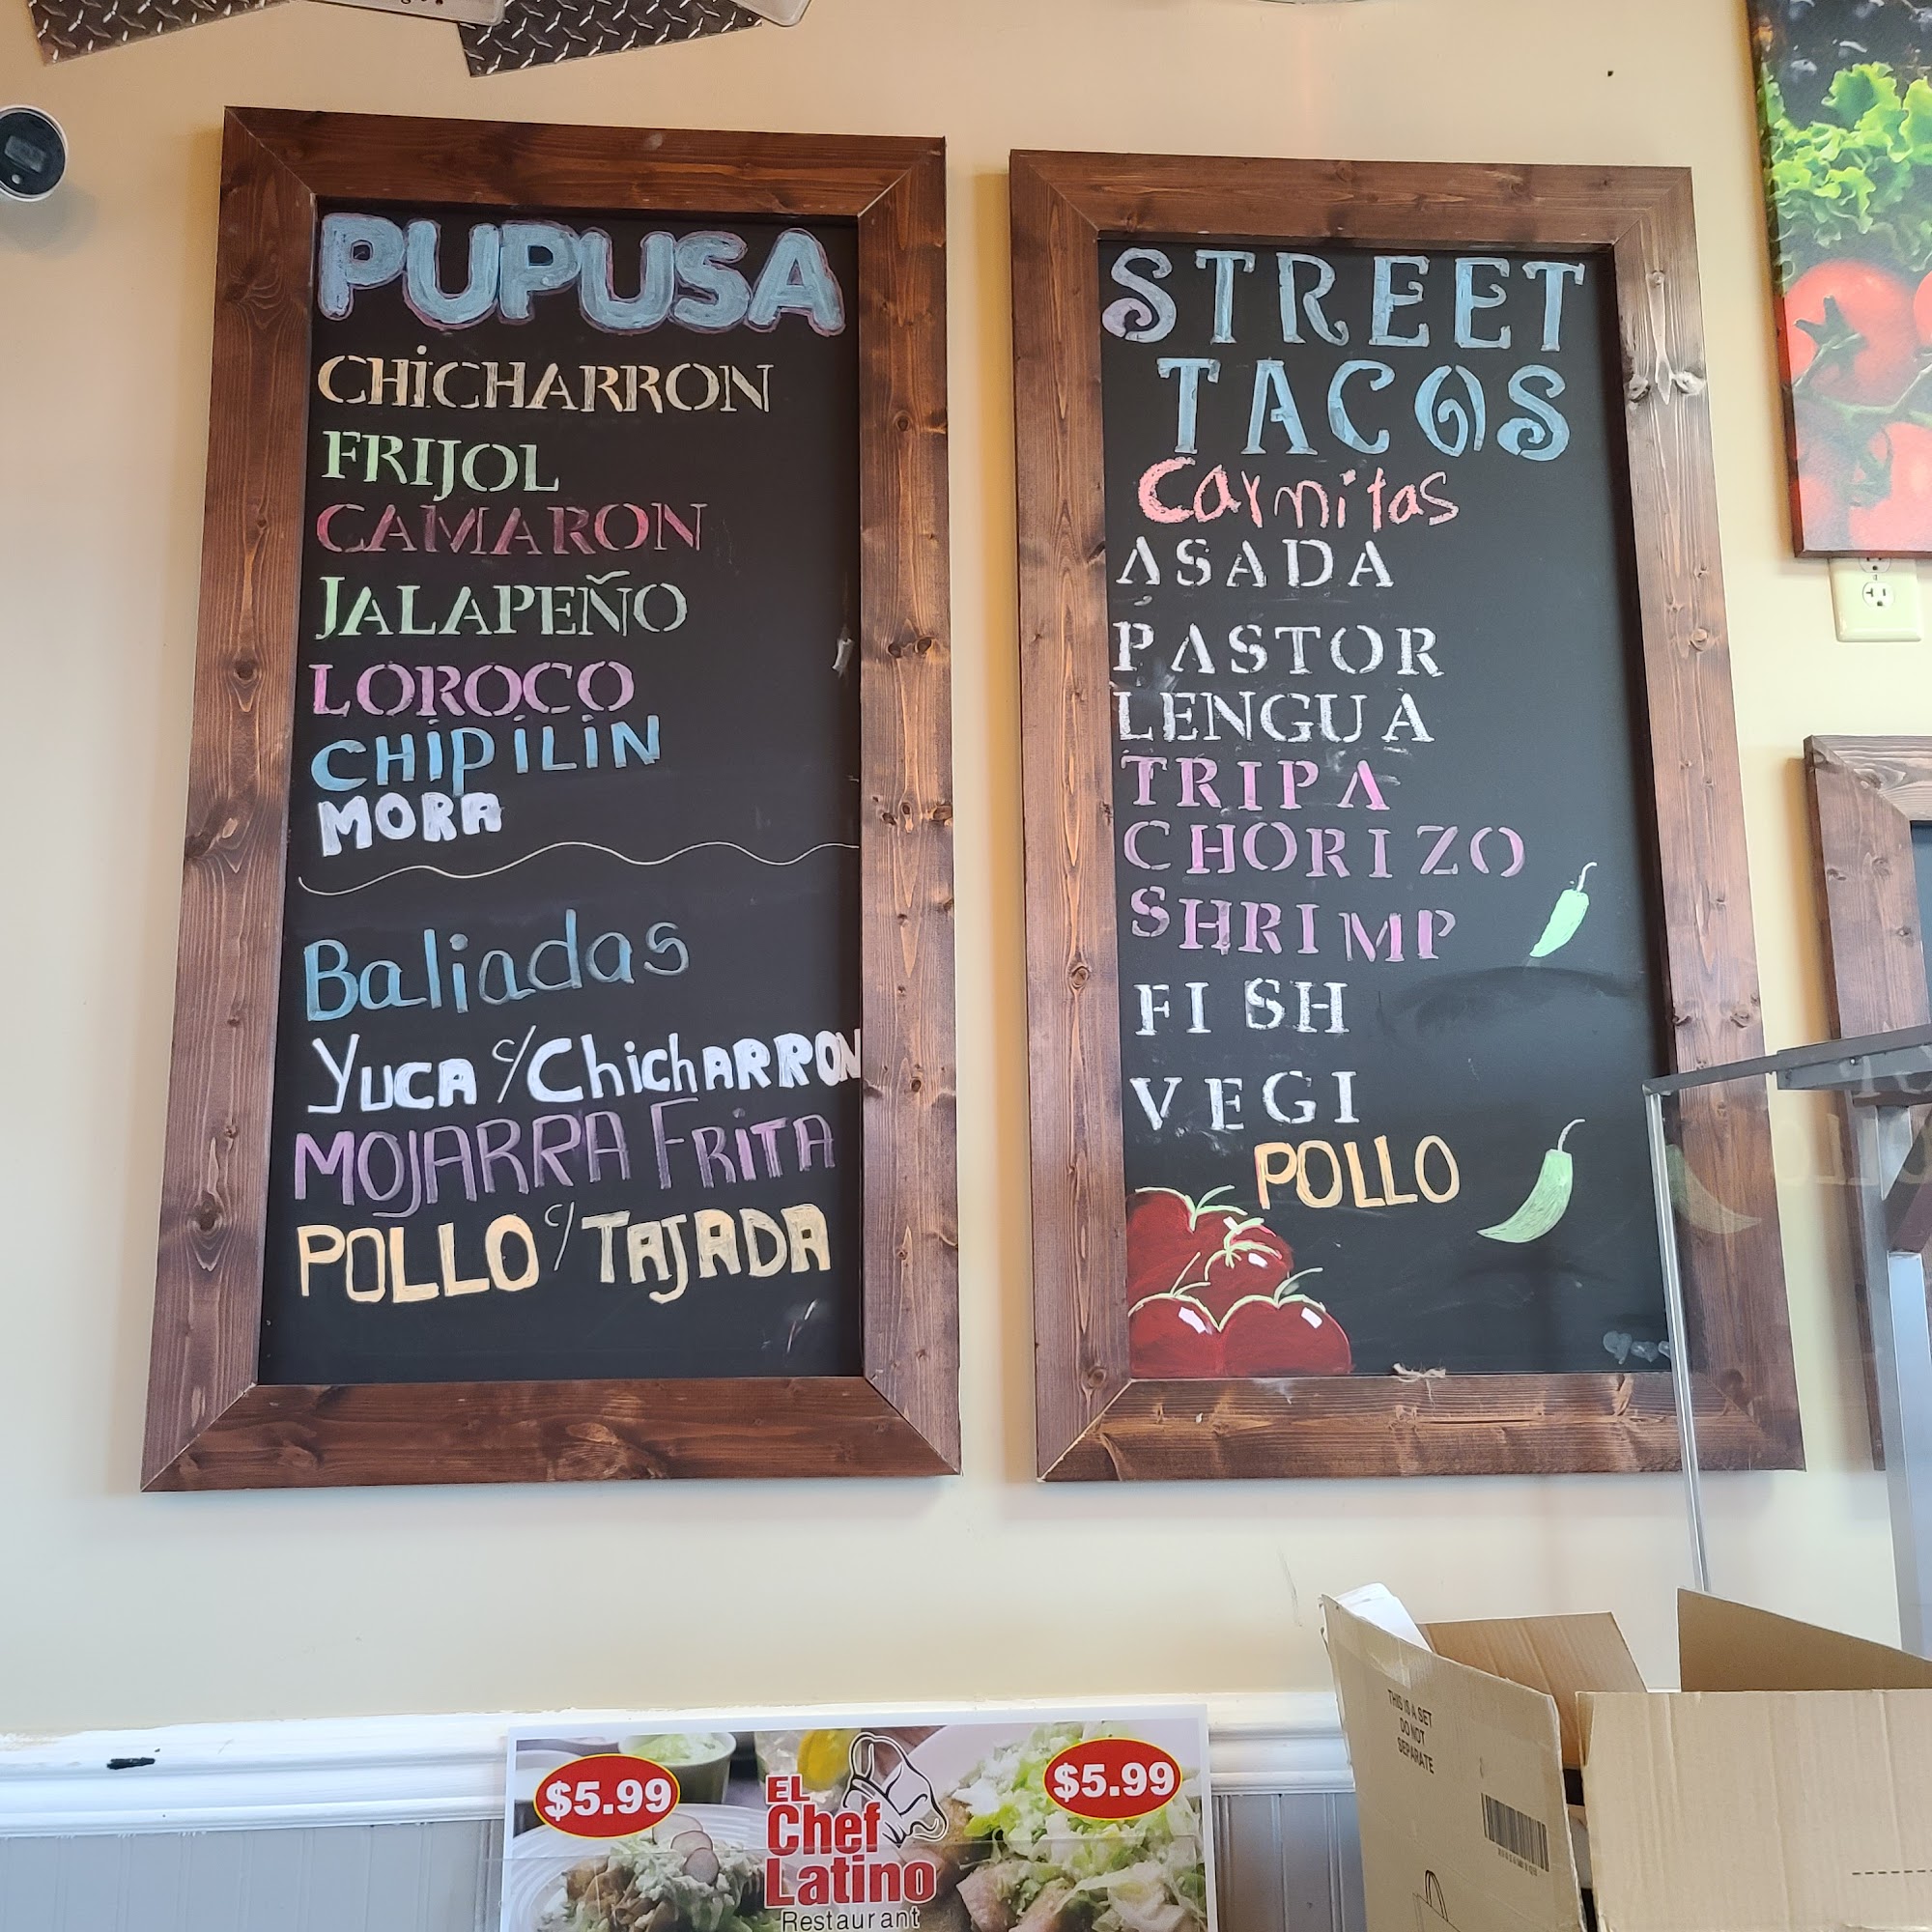 PUPUSA
CHiCHARRON
FRIJOL
CAMARON
JALAPEÑO
LOROCO
CHiPiLiN
MORA
Baliadas
Yuca c/ChichARRON
MOJARRA FRiTA
POLLO c/ TAJADA
STREET
TACOS
Carnitas
ASADA
PASTOR
LENGUA
TRIPA
CHORIZO
SHRIMP
FISH
VEGI
POLLO
$5.99
EL
Chef
Latino
Restaurant
$5.99
THIS IS A SET
DO NOT
SEPARATE